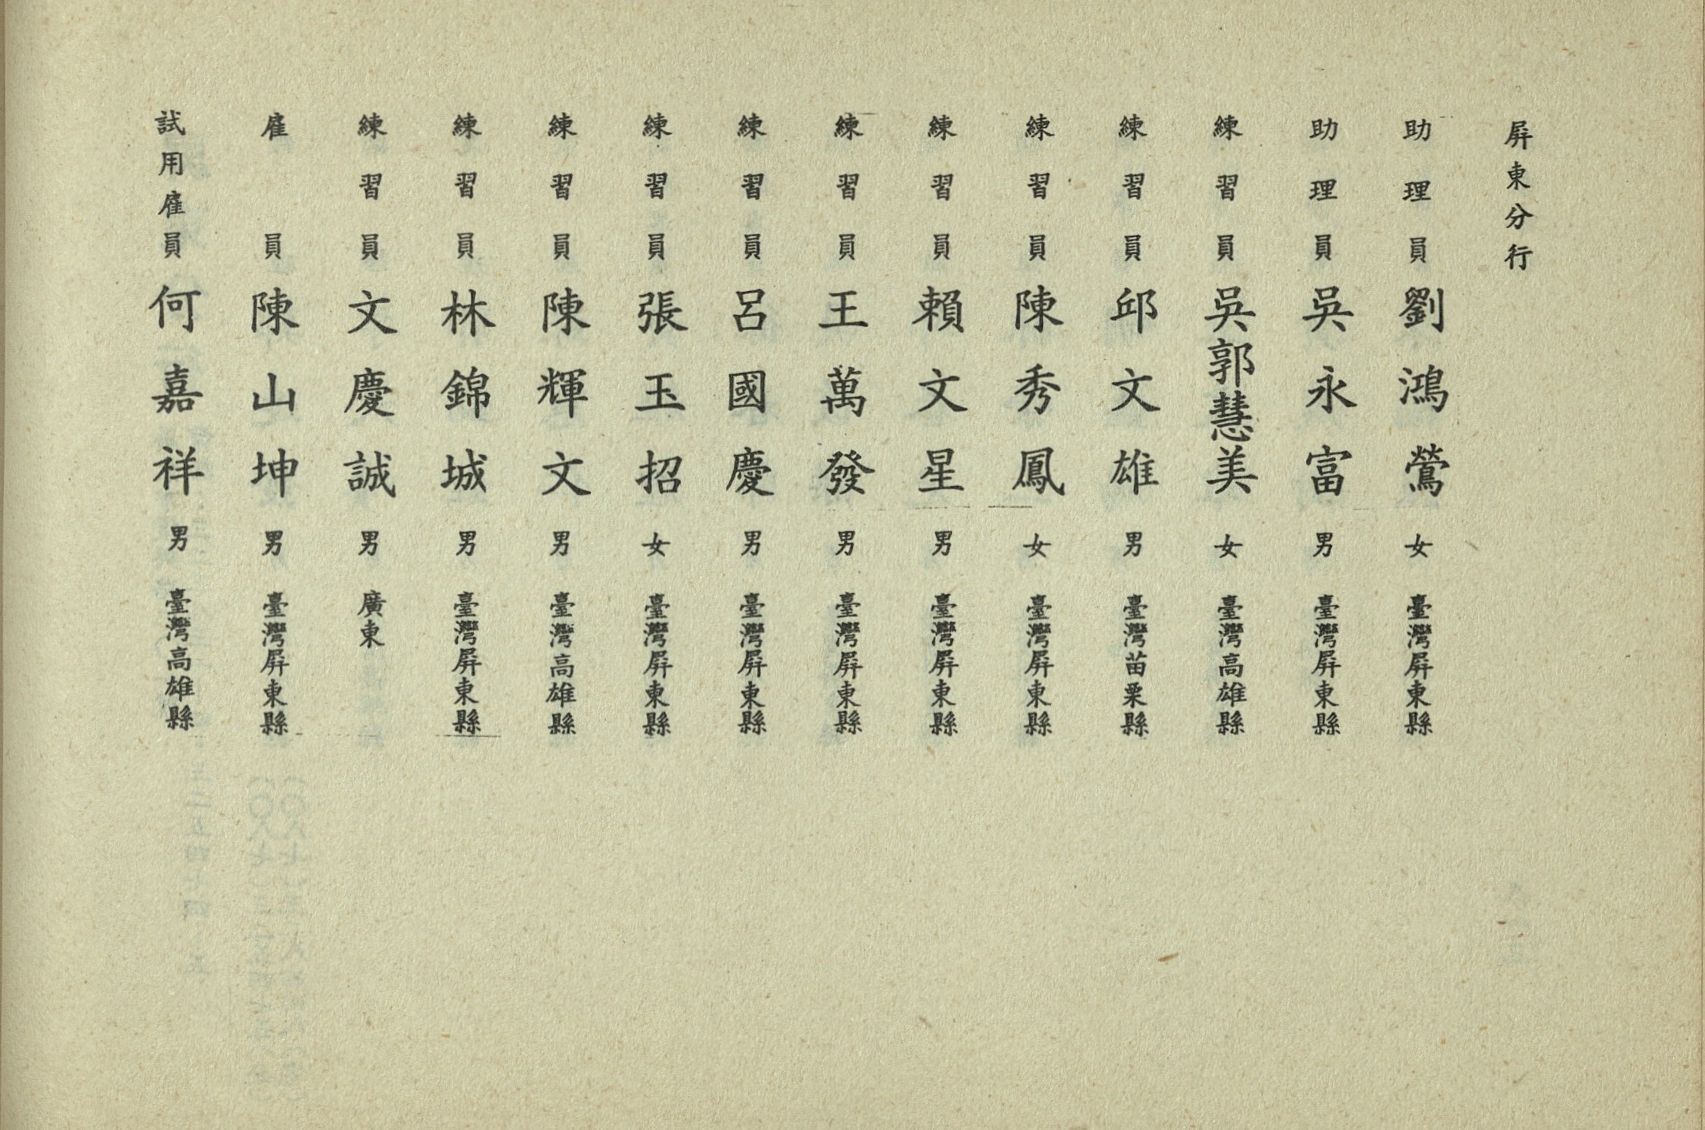 屏東分行
助理員 劉鴻鶯 女 臺灣屏東縣
助理員 吳永富 男 臺灣屏東縣
練習員 吳郭慧美 女 臺灣高雄縣
練習員 邱文雄 男 臺灣苗栗縣
練習員 陳秀鳳 女 臺灣屏東縣
練習員 賴文星 男 臺灣屏東縣
練習員 王萬發 男 臺灣屏東縣
練習員 呂國慶 男 臺灣屏東縣
練習員 張玉招 女 臺灣屏東縣
練習員 陳輝文 男 臺灣高雄縣
練習員 林錦城 男 臺灣屏東縣
練習員 文慶誠 男 廣東
雇員 陳山坤 男 臺灣屏東縣
試用雇員 何嘉祥 男 臺灣高雄縣